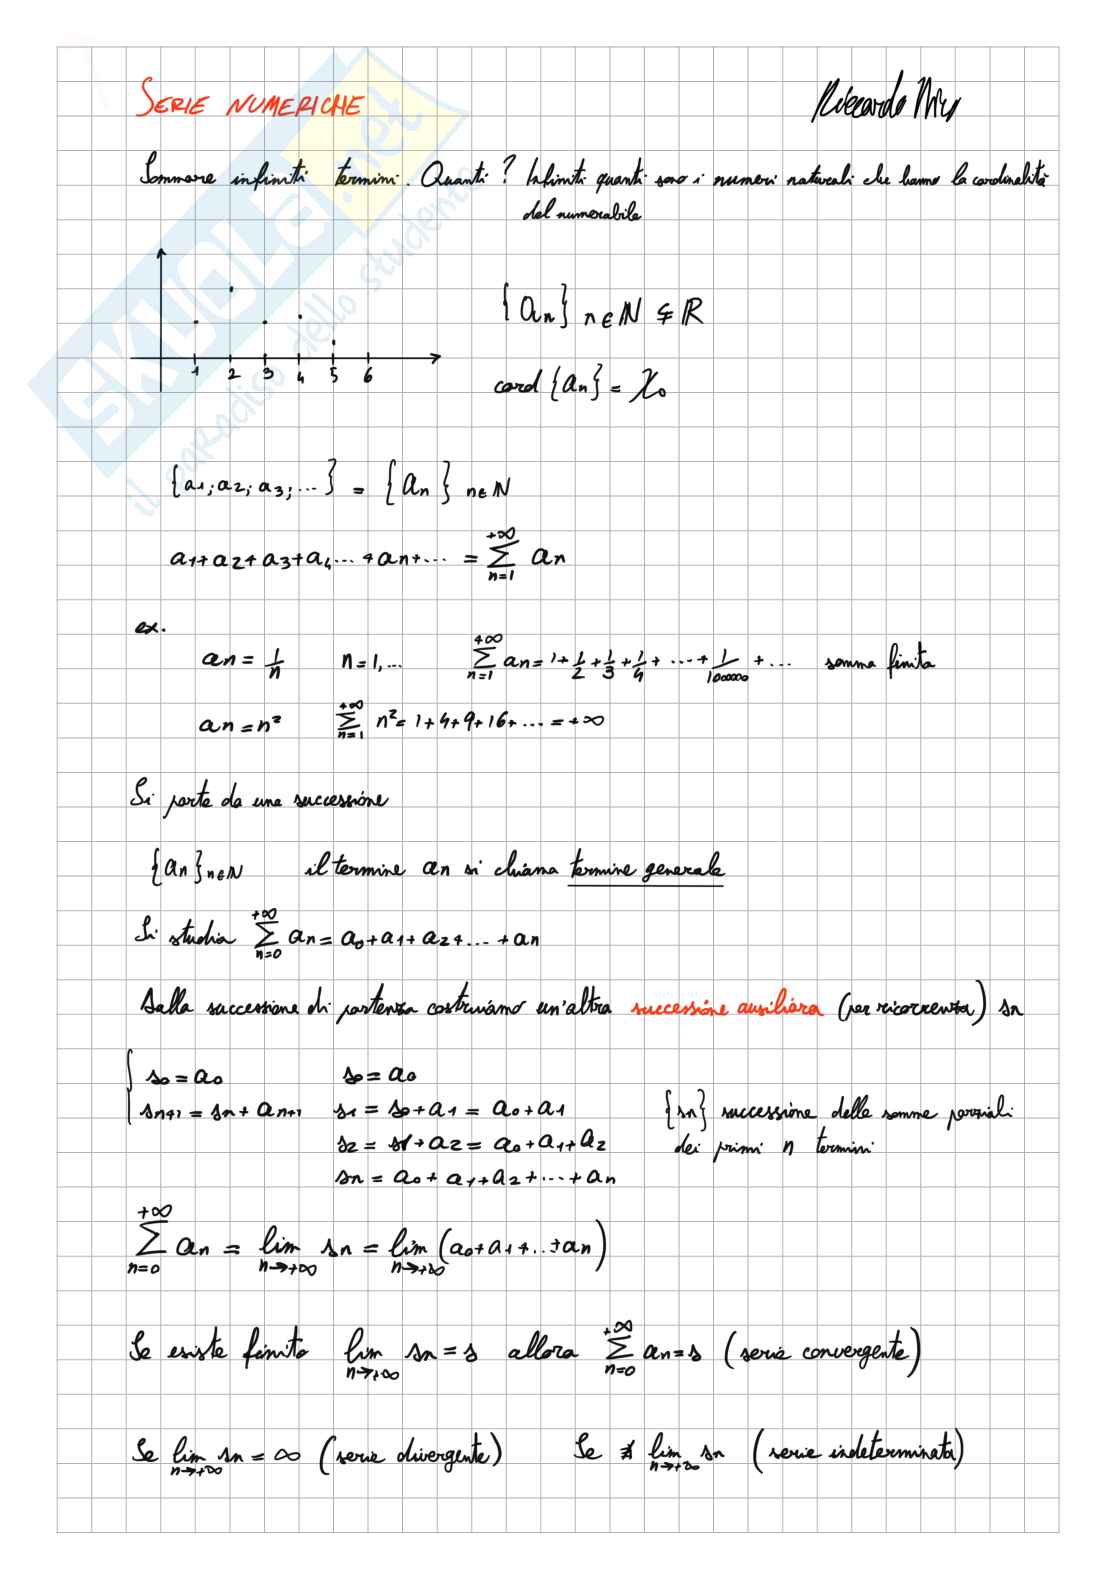 SERIE NUMERICHE
Riccardo
Sommare infiniti termini. Quanti? Infiniti quanti sono i numeri naturali che hanno la cardinalità
del numerabile
{an} n∈ℕ ⊊ ℝ
1 2 3 4 5 6
card {an} = ℵ₀
{a1; a2; a3; ...} = {an} n∈ℕ
a1+a2+a3+a4...+an+... = +∞ Σ n=1 an
ex.
an = 1/n n=1,... +∞ Σ n=1 an = 1+1/2+1/3+1/4+...+1/1000000+... somma finita
an = n² +∞ Σ n=1 n² = 1+4+9+16+... = +∞
Si parte da una successione
{an} n∈ℕ il termine an si chiama termine generale
Si studia +∞ Σ n=0 an = a0+a1+a2+...+an
Dalla successione di partenza costruiamo un'altra successione ausiliara (per ricorrenza) sn
s0 = a0 s0 = a0
sn+1 = sn + an+1 s1 = s0+a1 = a0+a1 {sn} successione delle somme parziali
s2 = s1+a2 = a0+a1+a2 dei primi n termini
sn = a0+a1+a2+...+an
+∞ Σ n=0 an = lim n→+∞ sn = lim n→+∞ (a0+a1+...+an)
Se esiste finito lim n→+∞ sn = s allora +∞ Σ n=0 an = s (serie convergente)
Se lim n→+∞ sn = ∞ (serie divergente) Se ∄ lim n→+∞ sn (serie indeterminata)
SKUOLA.net
il paradiso dello studente